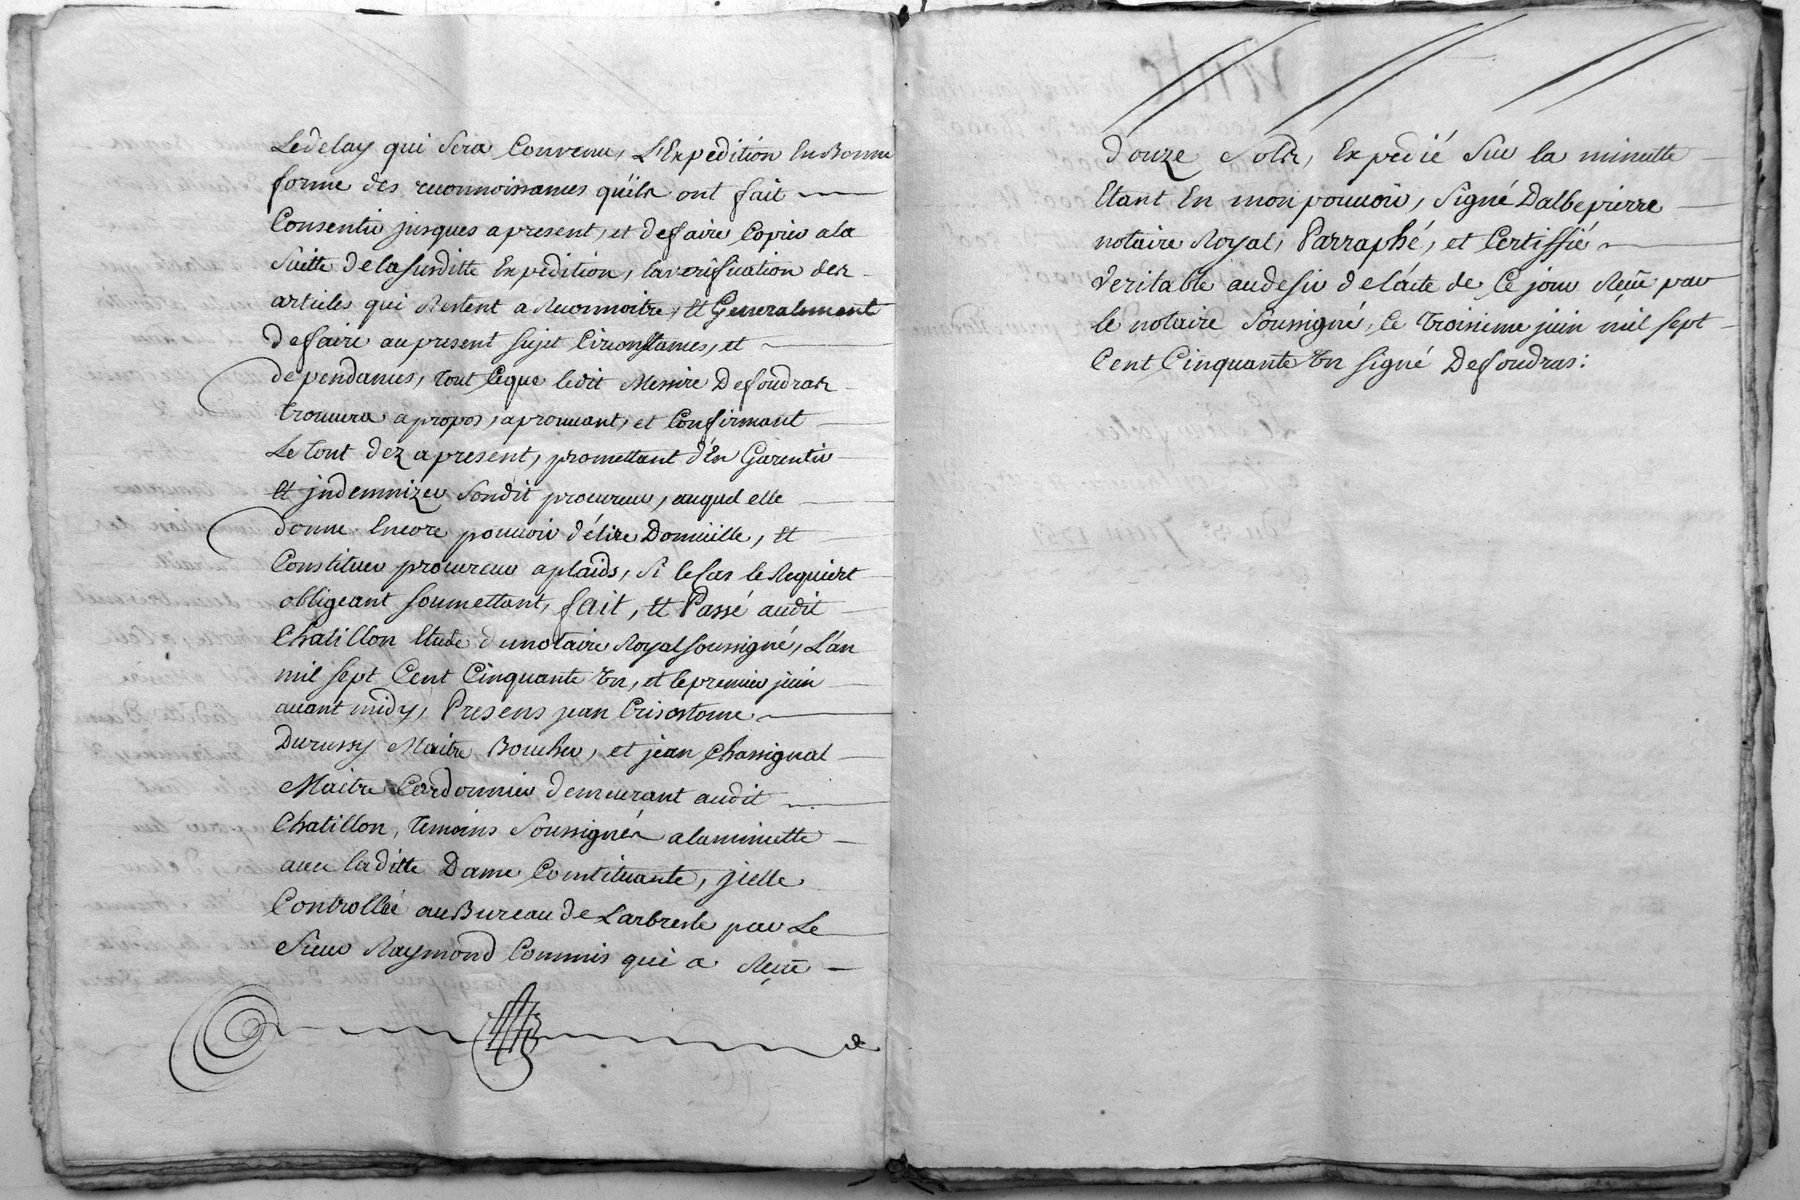 Ledelay qui Sera Convenu, L'Expedition En Bonne
forme des reconnoissances qu'ils ont fait
Consentir jusques a present, et defaire Copier a la
Suitte delasusditte Expedition, la verification des
articles qui Restent a Reconnoitre, Et Generalement
defaire au present sujet Circonstances, et
dependances, tout Ceque ledit Messire Defoudras
trouvera a propos, aprouvant, et Confirmant
Le tout dez a present, promettant d'En Garentir
Et jndemnizer Sondit procureur, auquel elle
donne Encore pouvoir d'élire Domicille, Et
Constituer procureur a plaids, Si le Cas le Requiert
obligeant soumettant, fait, Et Passé audit
Chatillon Etude du notaire Royal soussigné, L'an
mil sept Cent Cinquante Un, et le premier juin
avant midy, Presens jean Crisostome
Durussy Maitre Boucher, et jean Chassignal
Maitre Cordonnier demeurant audit
Chatillon, Temoins Soussignés alaminutte
avec laditte Dame Constituante, jcelle
Controllée au Bureau de Larbresle par Le
Sieur Raymond Commis qui a Reçû
douze Sols, Expedié Sur la minutte
Etant En mon pouvoir, Signé Dalbepierre
notaire Royal, Parraphé, et Certiffié
Veritable au desir de l'acte de Ce jour Reçû par
le notaire Soussigné, Ce troisieme juin mil sept
Cent Cinquante Un signé Defoudras: